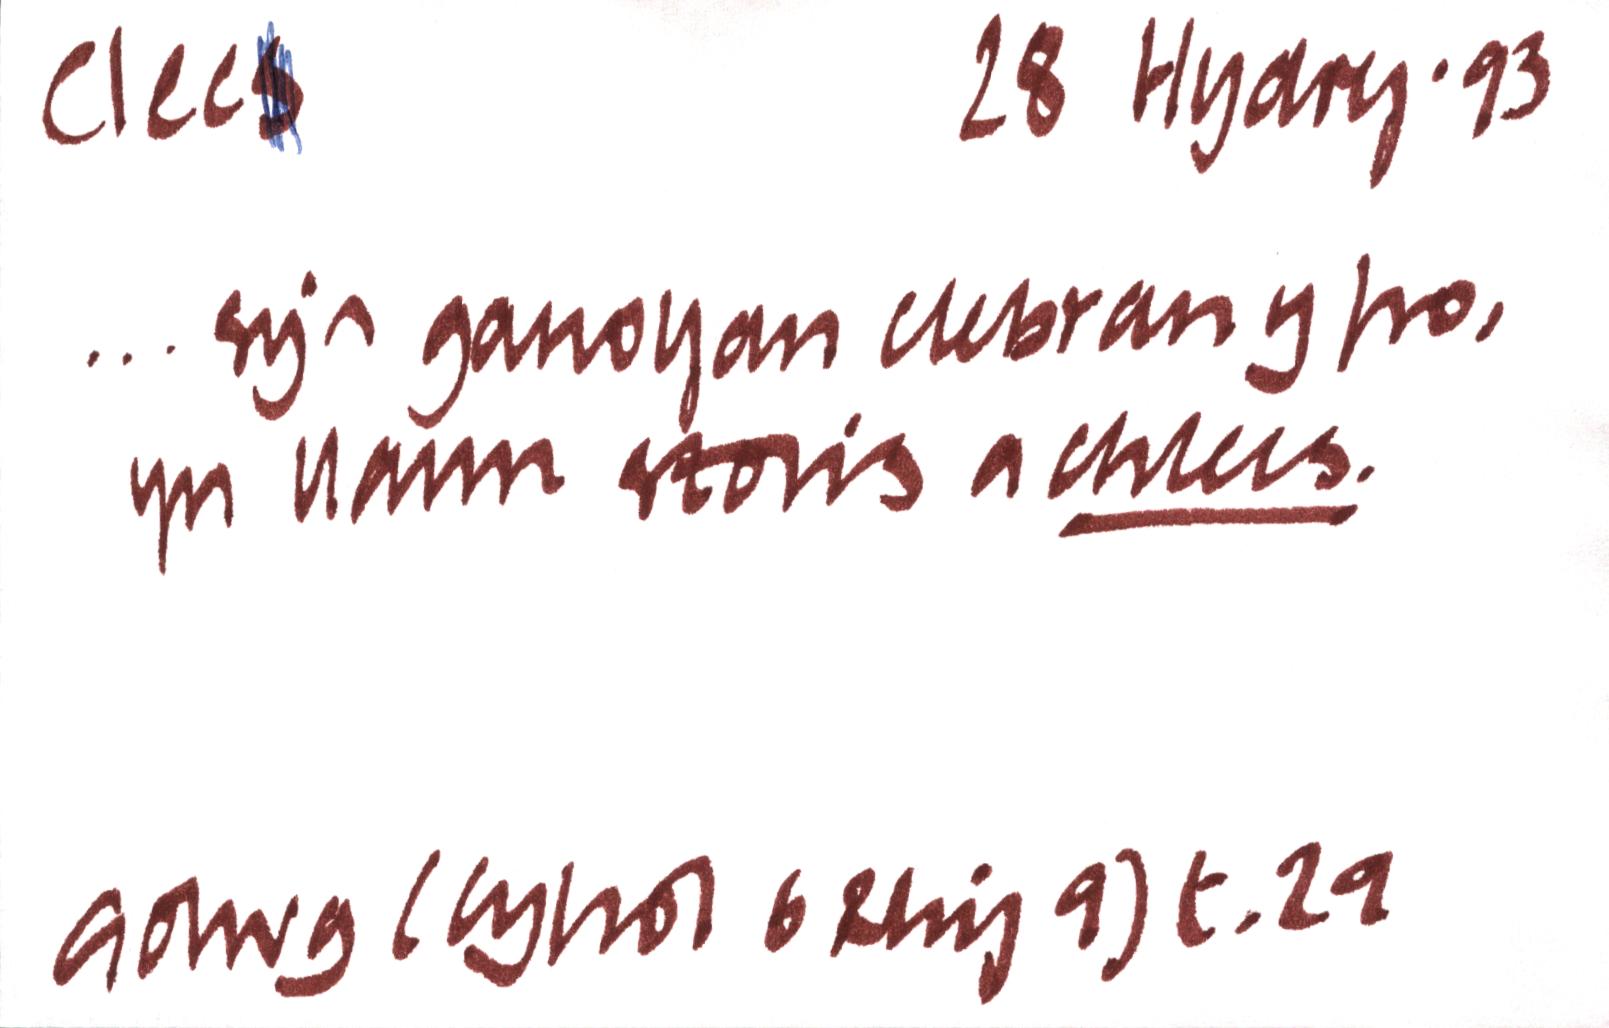 Clecs
28 Hydref · 93
... sy'n ganolfan clebran y fro,
yn llawn storis a chlecs.
Golwg (Cyfrol 6 Rhif 9) t. 29